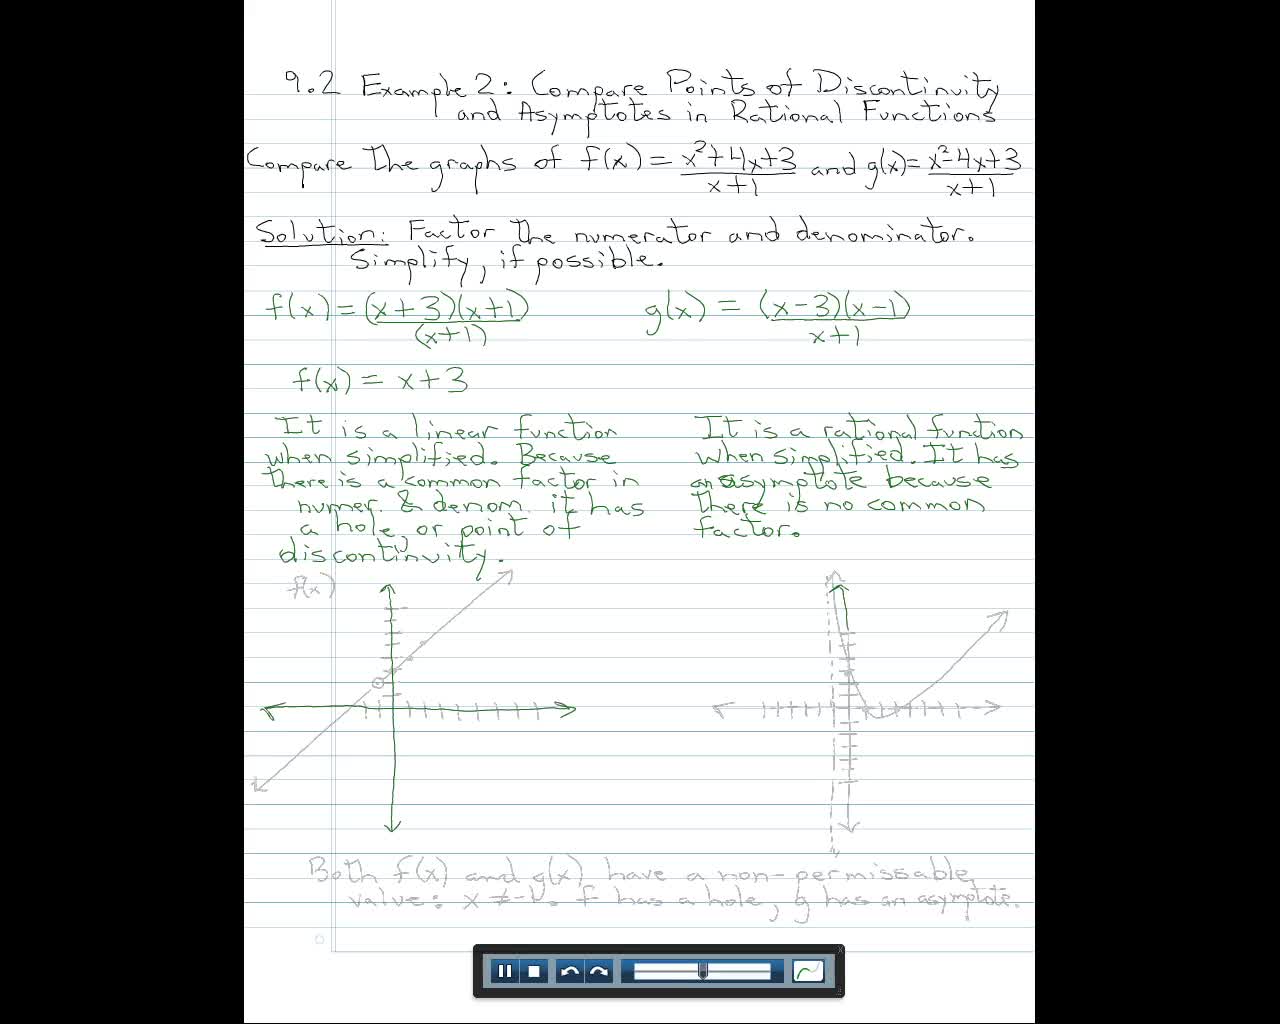 9.2 Example 2: Compare Points of Discontinuity
and Asymptotes in Rational Functions
Compare the graphs of f(x) = x²+4x+3 / x+1 and g(x) = x²-4x+3 / x+1
Solution: Factor the numerator and denominator.
Simplify, if possible.
f(x) = (x+3)(x+1) / (x+1)
g(x) = (x-3)(x-1) / x+1
f(x) = x+3
It is a linear function
when simplified. Because
there is a common factor in
numer. & denom. it has
a hole, or point of
discontinuity.
It is a rational function
when simplified. It has
an asymptote because
there is no common
factor.
f(x)
Both f(x) and g(x) have a non-permissable
value: x ≠ -1. f has a hole, g has an asymptote.